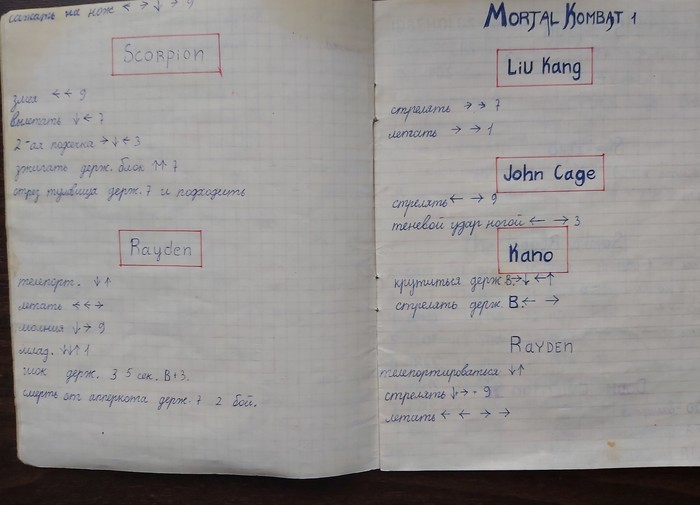 сажать на нож ← → ↓ → 9
Scorpion
змея ← ← 9
вылетать ↓ ← 7
2-ая подсечка → ↓ ← 3
зжигать держ. блок ↑↑ 7
отрез туловища держ. 7 и подходить
Rayden
телепорт. ↓↑
летать ← ← →
молния ↓ → 9
млад. ↓↓↑ 1
шок держ. 3 5 сек. В+3.
смерть от апперкота держ. 7 2 бой.
MORTAL KOMBAT 1
Liu Kang
стрелять → → 7
летать → → 1
John Cage
стрелять ← → 9
теневой удар ногой ← → 3
Kano
крутиться держ В.→↓ ←↑
стрелять держ. В.← →
RAYDEN
телепортироваться ↓↑
стрелять ↓→ - 9
летать ← ← → →